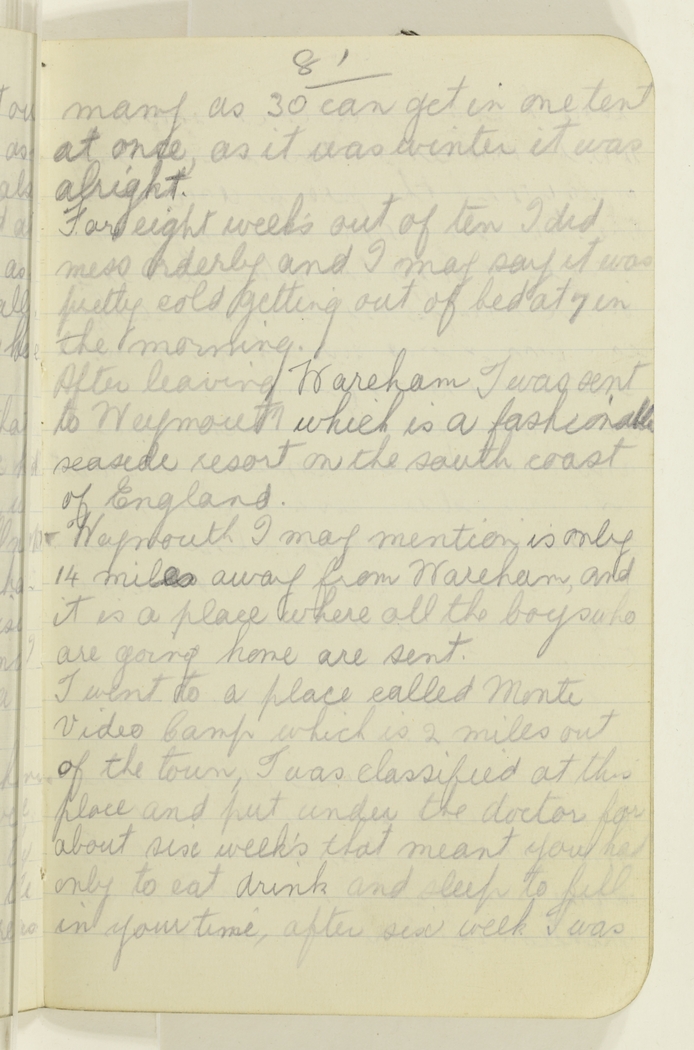 81
many as 30 can get in one tent
at once, as it was winter it was
alright.
For eight week's out of ten I did
mess orderly and I may say it was
pretty cold getting out of bed at 7 in
the morning.
After leaving Wareham I was sent
to Weymouth which is a fashionable
seaside resort on the south coast
of England.
Weymouth I may mention is only
14 miles away from Wareham, and
it is a place where all the boys who
are going home are sent.
I went to a place called Monte
Video Camp which is 2 miles out
of the town, I was classified at this
place and put under the doctor for
about six week's that meant you had
only to eat drink and sleep to fill
in your time, after six week I was